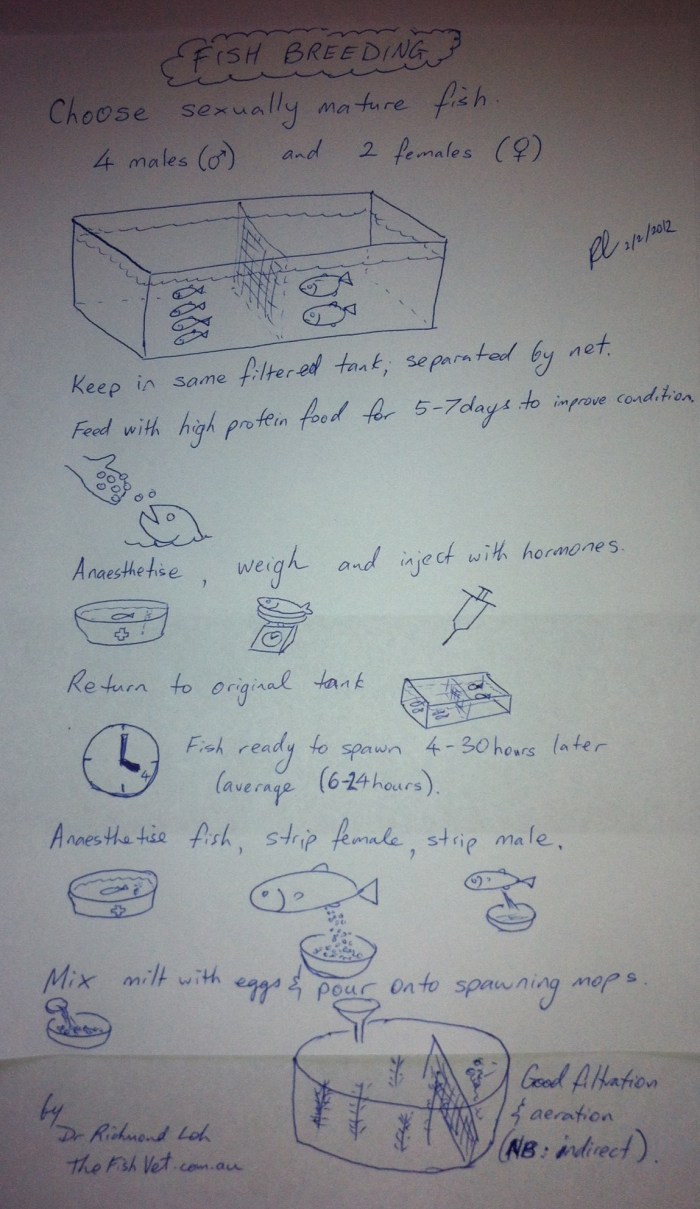 FISH BREEDING
Choose sexually mature fish.
4 males (♂) and 2 females (♀)
RL 2/2/2012
Keep in same filtered tank, separated by net.
Feed with high protein food for 5-7days to improve condition.
Anaesthetise, weigh and inject with hormones.
Return to original tank
4
Fish ready to spawn 4-30hours later
(average (6-24hours).
Anaesthetise fish, strip female, strip male.
Mix milt with eggs & pour onto spawning mops.
Good filtration
& aeration
(NB: indirect).
by
Dr Richmond Loh
TheFishVet.com.au